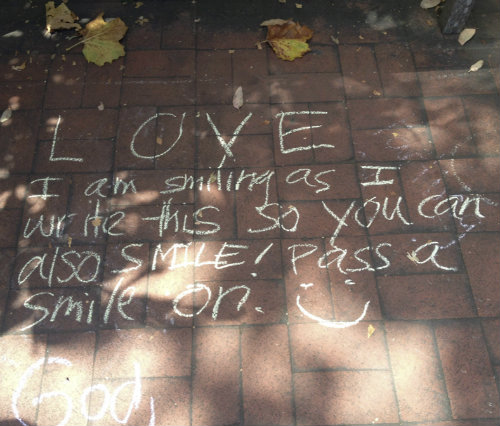 LOVE
I am smiling as I
write this so you can
also SMILE! Pass a
smile on.
God,